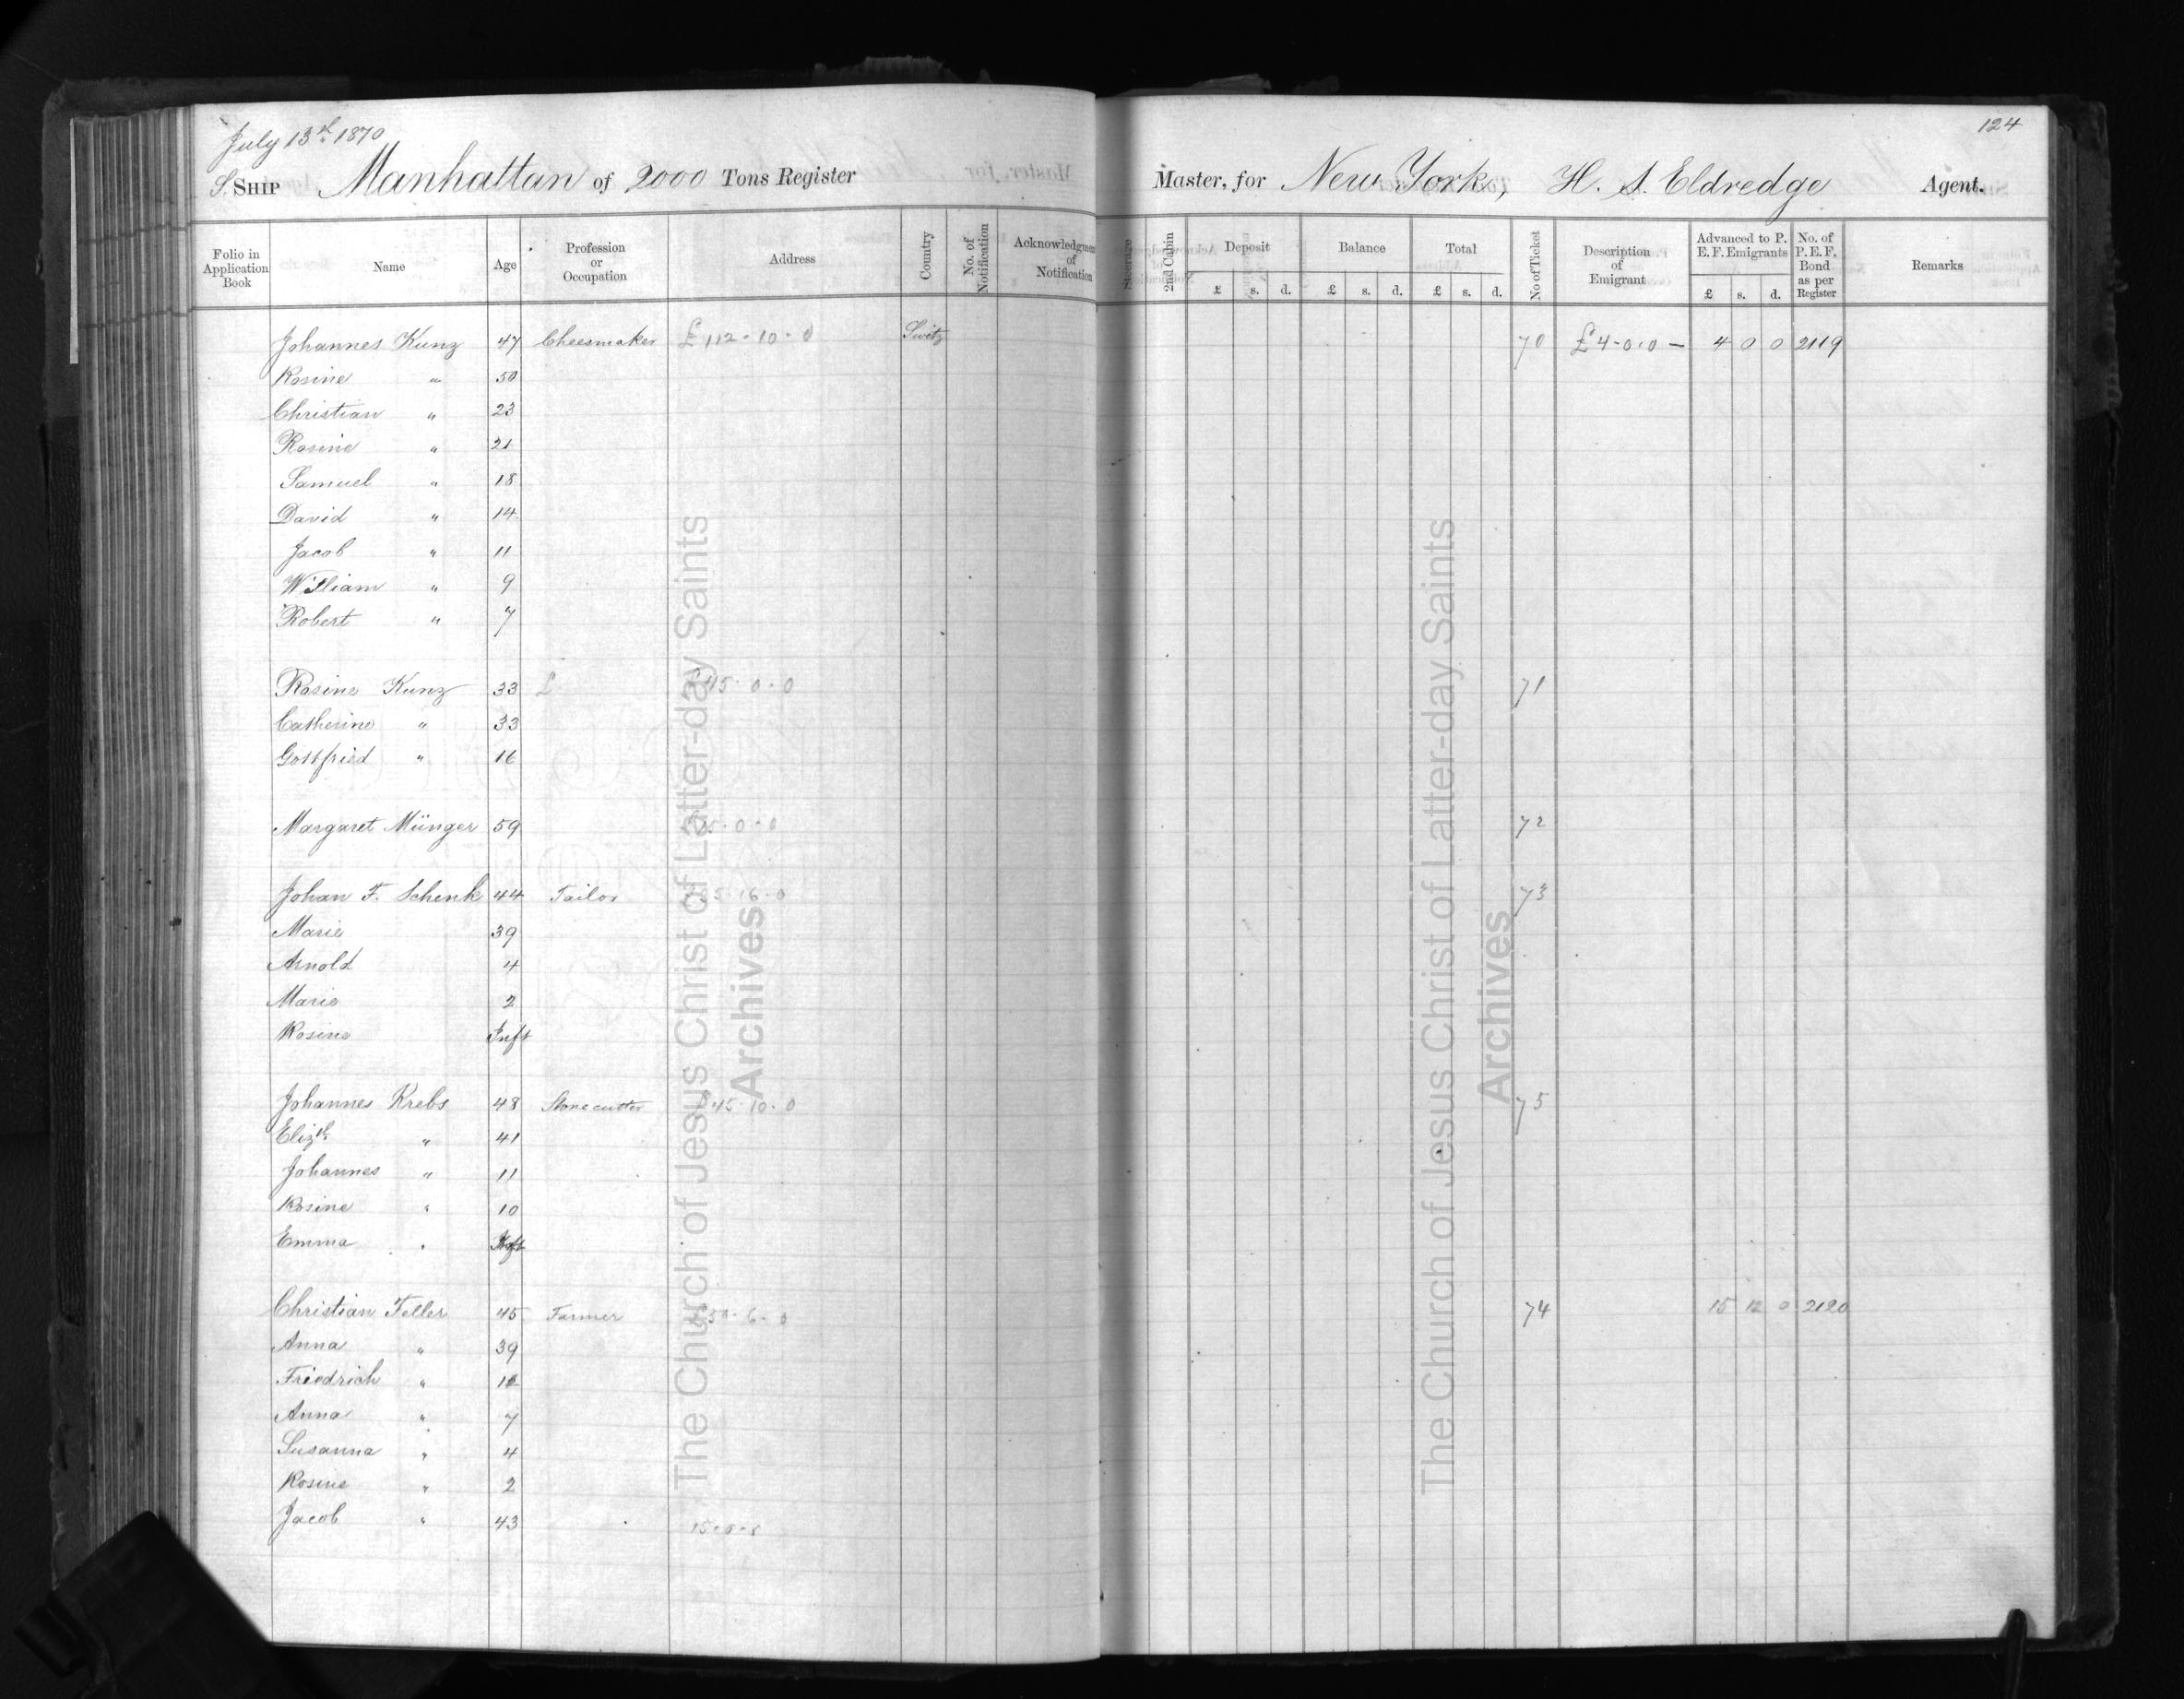 July 13th 1870
124
S. SHIP Manhattan of 2000 Tons Register Master, for New York, H. S. Eldredge Agent.
Folio in Application Book Name Age Profession or Occupation Address Country No. of Notification Acknowledgment of Notification Steerage 2nd Cabin Deposit Balance Total No of Ticket Description of Emigrant Advanced to P. E. F. Emigrants No. of P. E. F. Bond as per Register Remarks
£ s. d. £ s. d. £ s. d. £ s. d.
Johannes Kunz 47 Cheesmaker £112-10-0 Switz 70 £4-0.0 — 4 0 0 2119
Rosine " 50
Christian " 23
Rosine " 21
Samuel " 18
David " 14
Jacob " 11
William " 9
Robert " 7
Rosine Kunz 33 £ 45-0-0 71
Catherine " 33
Gottfried " 16
Margaret Münger 59 15-0-0 72
Johan F. Schenk 44 Tailor 16-0 73
Marie 39
Arnold 4
Marie 2
Rosine Inft
Johannes Krebs 48 Stonecutter £45-10-0 75
Elizth " 41
Johannes " 11
Rosine " 10
Emma " Inft
Christian Teller 45 Farmer £50-6-0 74 15 12 0 2120
Anna " 39
Friedrich " 12
Anna " 7
Susanna " 4
Rosine " 2
Jacob " 43
The Church of Jesus Christ of Latter-day Saints
Archives
The Church of Jesus Christ of Latter-day Saints
Archives